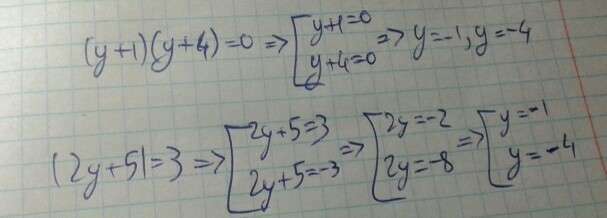 (y+1)(y+4)=0 => [y+1=0 y+4=0 => y=-1, y=-4
|2y+5|=3 => [2y+5=3 2y+5=-3 => [2y=-2 2y=-8 => [y=-1 y=-4